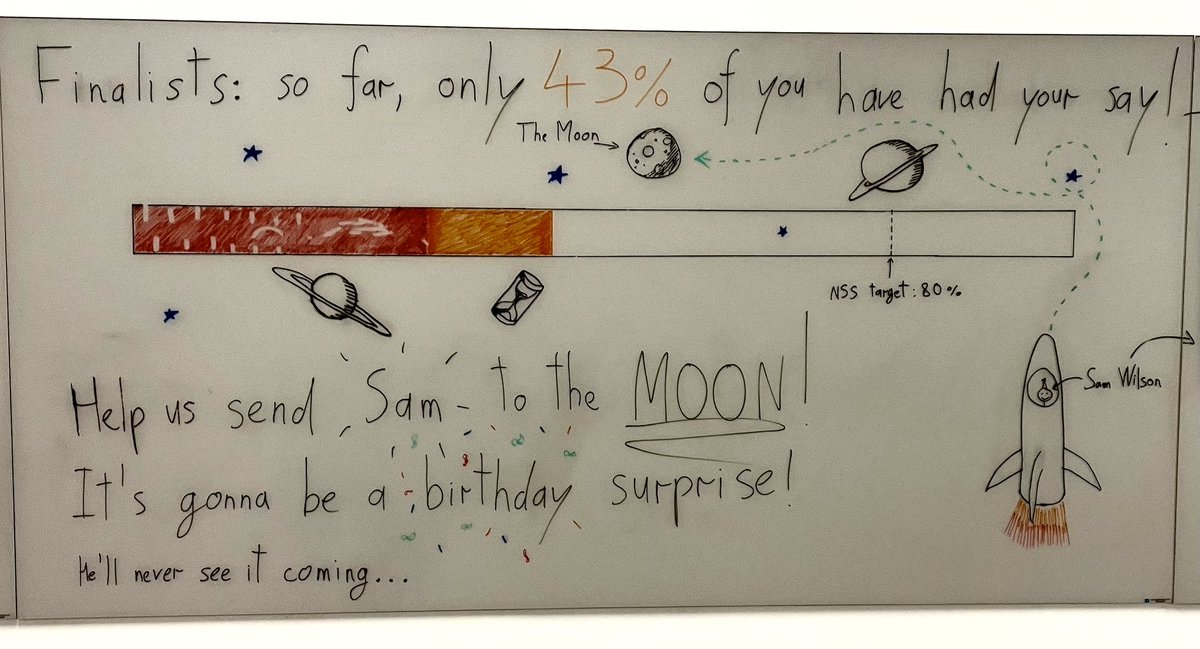 Finalists: so far, only 43% of you have had your say!
The Moon
NSS target: 80%
Sam Wilson
Help us send Sam to the MOON!
It's gonna be a birthday surprise!
He'll never see it coming...